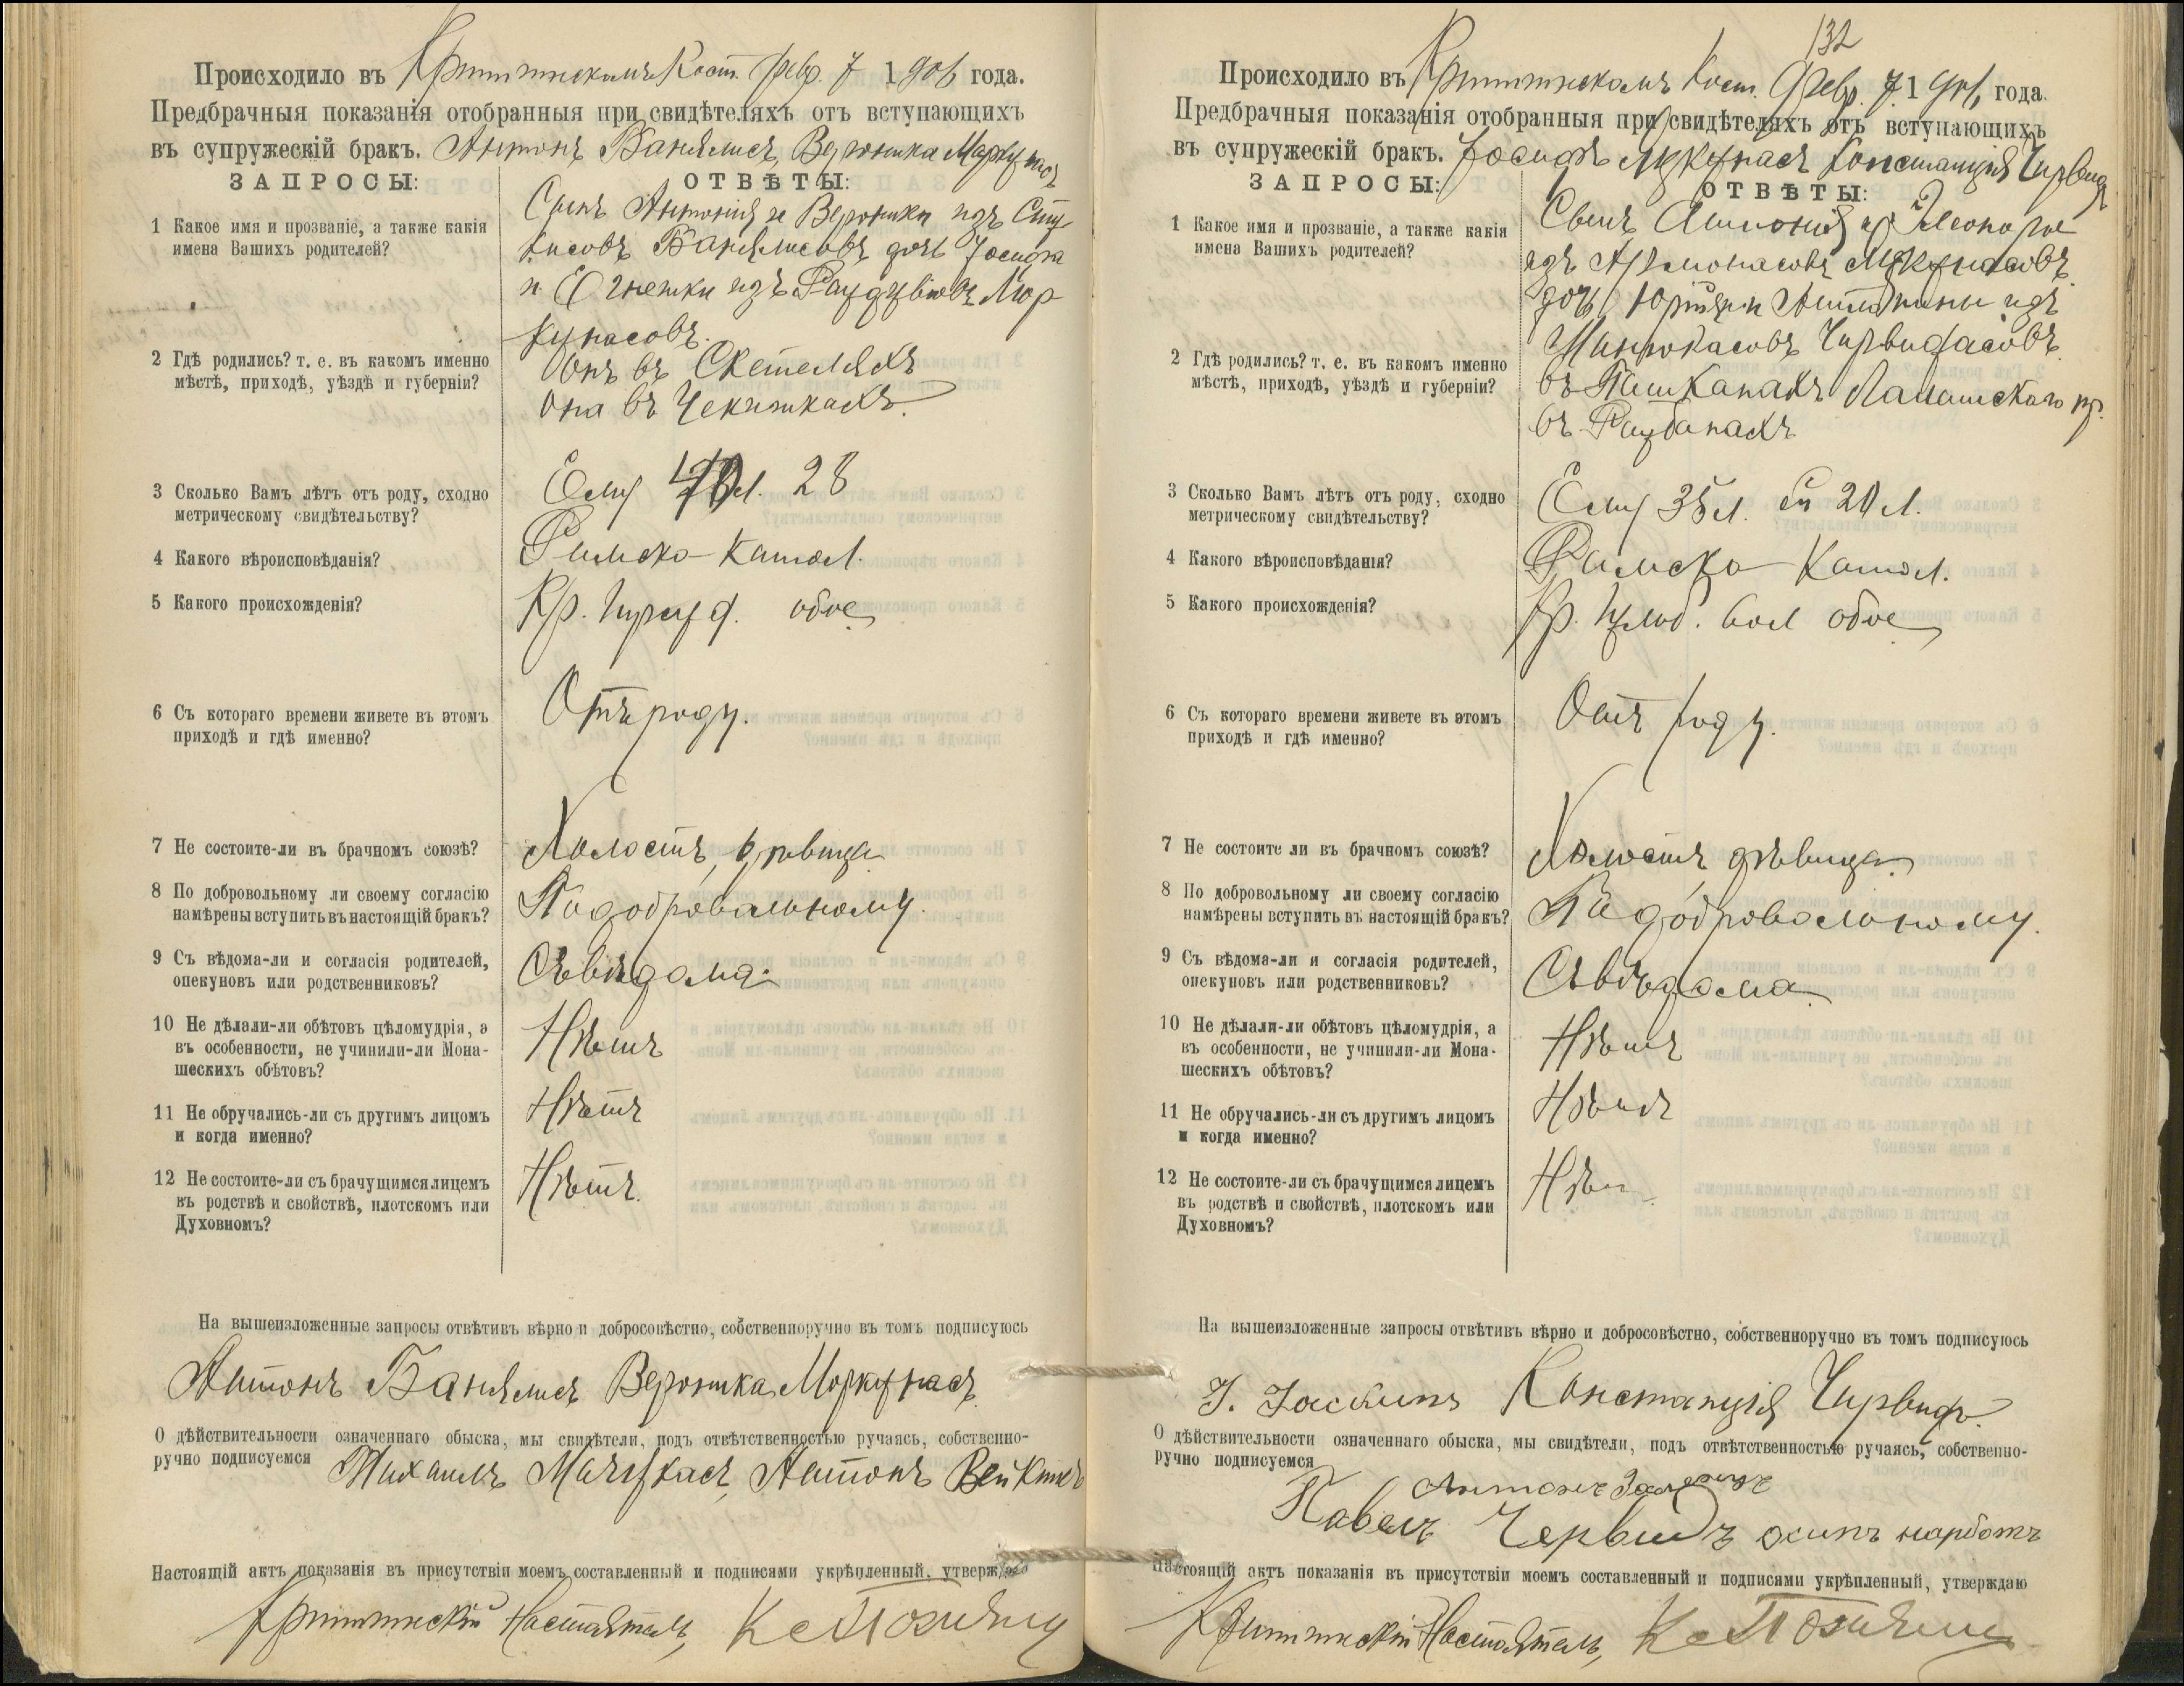 Происходило въ Кроттингскомъ Кост. февр. 7 1906 года.
Предбрачныя показанія отобранныя при свидѣтеляхъ отъ вступающихъ
въ супружескій бракъ. Антонъ Банялисъ, Вероника Моркунасъ
ЗАПРОСЫ:
ОТВѢТЫ:
1 Какое имя и прозваніе, а также какія
имена Вашихъ родителей?
Сынъ Антонія и Вероники изъ
Банялисовъ дочь Іосифа
и Огнешки изъ Мор
кунасовъ.
2 Гдѣ родились? т. е. въ какомъ именно
мѣстѣ, приходѣ, уѣздѣ и губерніи?
Онъ въ Скетеляхъ
Она въ Чекишкахъ.
3 Сколько Вамъ лѣтъ отъ роду, сходно
метрическому свидѣтельству?
Ему л. 28
4 Какого вѣроисповѣданія?
Римско-Катол.
5 Какого происхожденія?
Кр. обое
6 Съ котораго времени живете въ этомъ
приходѣ и гдѣ именно?
Отъ роду.
7 Не состоите-ли въ брачномъ союзѣ?
Холостъ, дѣвица
8 По добровольному ли своему согласію
намѣрены вступить въ настоящій бракъ?
По добровольному.
9 Съ вѣдома-ли и согласія родителей,
опекуновъ или родственниковъ?
Съ вѣдома.
10 Не дѣлали-ли обѣтовъ цѣломудрія, а
въ особенности, не учинили-ли Мона-
шескихъ обѣтовъ?
Нѣтъ
11 Не обручались-ли съ другимъ лицомъ
и когда именно?
Нѣтъ
12 Не состоите-ли съ брачущимся лицемъ
въ родствѣ и свойствѣ, плотскомъ или
Духовномъ?
Нѣтъ.
На вышеизложенные запросы отвѣтивъ вѣрно и добросовѣстно, собственноручно въ томъ подписуюсь
Антонъ Банялисъ Вероника Моркунасъ
О дѣйствительности означеннаго обыска, мы свидѣтели, подъ отвѣтственностью ручаясь, собственно-
ручно подписуемся Михаилъ Мачукасъ, Антонъ
Настоящій актъ показанія въ присутствіи моемъ составленный и подписями укрѣпленный, утверждаю
Настоятель,
132
Происходило въ Кроттингскомъ Кост. Февр. 7 1906 года.
Предбрачныя показанія отобранныя при свидѣтеляхъ отъ вступающихъ
въ супружескій бракъ. Іосифъ Констанція Чирвид
ЗАПРОСЫ:
ОТВѢТЫ:
1 Какое имя и прозваніе, а также какія
имена Вашихъ родителей?
Сынъ Антонія и Элеоноры
изъ
дочь Юрія и изъ
Чирвидасовъ
2 Гдѣ родились? т. е. въ какомъ именно
мѣстѣ, приходѣ, уѣздѣ и губерніи?
въ пр.
въ
3 Сколько Вамъ лѣтъ отъ роду, сходно
метрическому свидѣтельству?
Ему 35 л. ей 20 л.
4 Какого вѣроисповѣданія?
Римско Катол.
5 Какого происхожденія?
Кр. вол обое
6 Съ котораго времени живете въ этомъ
приходѣ и гдѣ именно?
Отъ роду.
7 Не состоите ли въ брачномъ союзѣ?
Холостъ дѣвица
8 По добровольному ли своему согласію
намѣрены вступить въ настоящій бракъ?
По добровольному.
9 Съ вѣдома-ли и согласія родителей,
опекуновъ или родственниковъ?
Съ вѣдома
10 Не дѣлали-ли обѣтовъ цѣломудрія, а
въ особенности, не учинили-ли Мона-
шескихъ обѣтовъ?
Нѣтъ
11 Не обручались-ли съ другимъ лицомъ
и когда именно?
Нѣтъ
12 Не состоите-ли съ брачущимся лицемъ
въ родствѣ и свойствѣ, плотскомъ или
Духовномъ?
Нѣт
На вышеизложенные запросы отвѣтивъ вѣрно и добросовѣстно, собственноручно въ томъ подписуюсь
Констанція Чирвидъ
О дѣйствительности означеннаго обыска, мы свидѣтели, подъ отвѣтственностью ручаясь, собственно-
ручно подписуемся
Антонъ
Павелъ Червидъ осипъ нарботъ
Настоящій актъ показанія въ присутствіи моемъ составленный и подписями укрѣпленный, утверждаю
Настоятель,